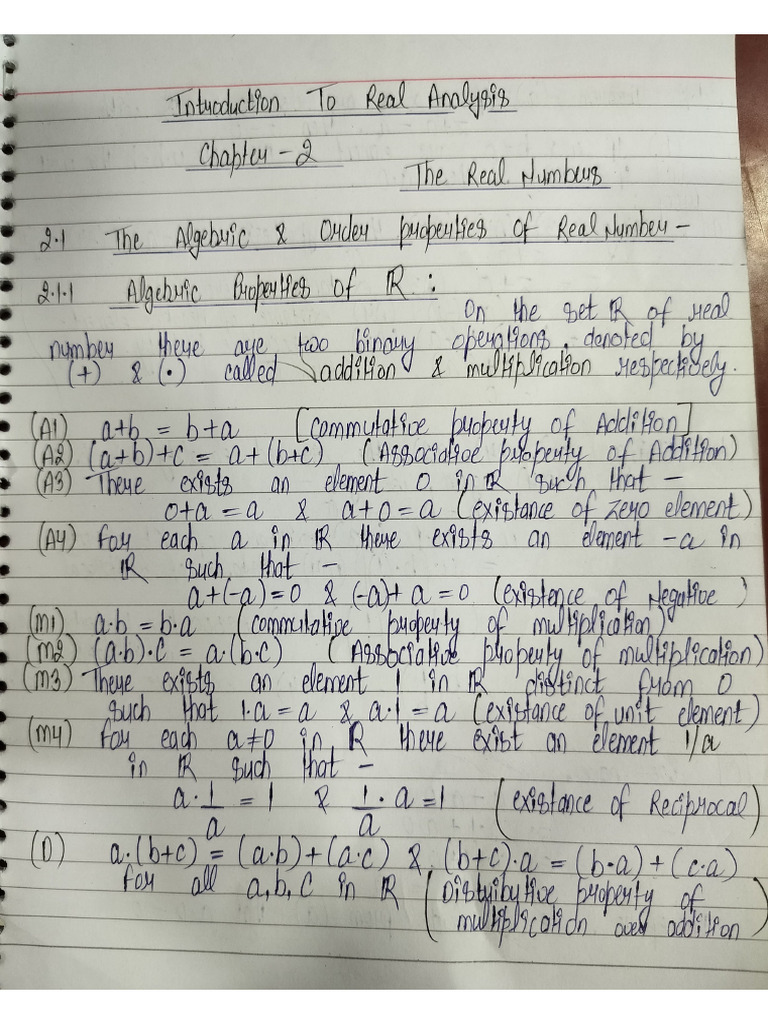 Introduction To Real Analysis
Chapter - 2
The Real Numbers
2.1 The Algebric & Order properties of Real Number -
2.1.1 Algebric Properties of ℝ :
On the set ℝ of real
number there are two binary operations, denoted by
(+) & (·) called addition & multiplication respectively.
(A1) a+b = b+a [Commutative property of Addition]
(A2) (a+b)+c = a+(b+c) (Associative property of Addition)
(A3) There exists an element 0 in ℝ such that -
0+a = a & a+0 = a (existance of zero element)
(A4) for each a in ℝ there exists an element -a in
ℝ such that -
a+(-a)=0 & (-a)+a=0 (existence of Negative)
(M1) a·b = b·a (commutative property of multiplication)
(M2) (a·b)·c = a·(b·c) (Associative property of multiplication)
(M3) There exists an element 1 in ℝ distinct from 0
such that 1·a = a & a·1 = a (existance of unit element)
(M4) for each a≠0 in ℝ there exist an element 1/a
in ℝ such that -
a·1/a = 1 & 1/a·a = 1 (existance of Reciprocal)
(D) a·(b+c) = (a·b)+(a·c) & (b+c)·a = (b·a)+(c·a)
for all a,b,c in ℝ (Distributive property of
multiplication over addition)